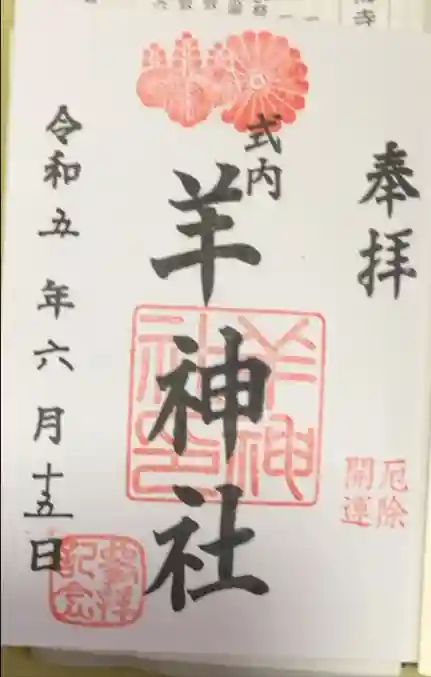 奉拝
厄除
開運
式内
羊神社
羊神
社印
令和五年六月十五日
記念